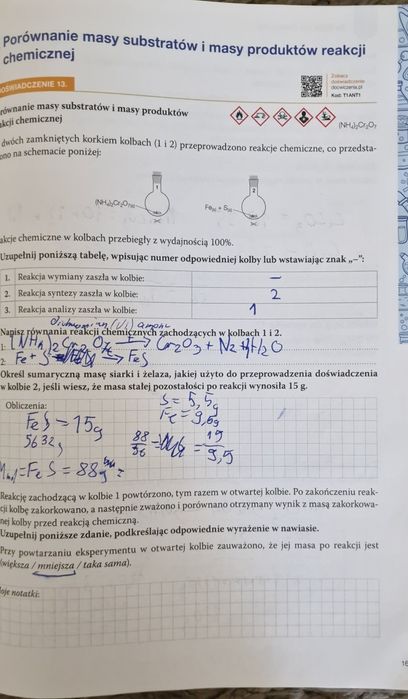 Porównanie masy substratów i masy produktów reakcji
chemicznej
DOŚWIADCZENIE 13.
Zobacz
doświadczenie
docwiczenia.pl
Kod: T1ANT1
równanie masy substratów i masy produktów
akcji chemicznej
(NH₄)₂Cr₂O₇
dwóch zamkniętych korkiem kolbach (1 i 2) przeprowadzono reakcje chemiczne, co przedsta-
ono na schemacie poniżej:
1
2
(NH₄)₂Cr₂O₇₍ₛ₎
Fe₍ₛ₎ + S₍ₛ₎
akcje chemiczne w kolbach przebiegły z wydajnością 100%.
Uzupełnij poniższą tabelę, wpisując numer odpowiedniej kolby lub wstawiając znak „–”:
1. Reakcja wymiany zaszła w kolbie: –
2. Reakcja syntezy zaszła w kolbie: 2
3. Reakcja analizy zaszła w kolbie: 1
Napisz równania reakcji chemicznych zachodzących w kolbach 1 i 2.
1. (NH4)2Cr2O7 → Cr2O3 + N2 + H2O
2. Fe + S → FeS
Określ sumaryczną masę siarki i żelaza, jakiej użyto do przeprowadzenia doświadczenia
w kolbie 2, jeśli wiesz, że masa stałej pozostałości po reakcji wynosiła 15 g.
Obliczenia:
S = 5,5g
Fe = 9,5g
FeS = 15g
56 32
88/56 = 15/9,5
FeS = 88g
Reakcję zachodzącą w kolbie 1 powtórzono, tym razem w otwartej kolbie. Po zakończeniu reak-
cji kolbę zakorkowano, a następnie zważono i porównano otrzymany wynik z masą zakorkowa-
nej kolby przed reakcją chemiczną.
Uzupełnij poniższe zdanie, podkreślając odpowiednie wyrażenie w nawiasie.
Przy powtarzaniu eksperymentu w otwartej kolbie zauważono, że jej masa po reakcji jest
(większa / mniejsza / taka sama).
oje notatki:
16